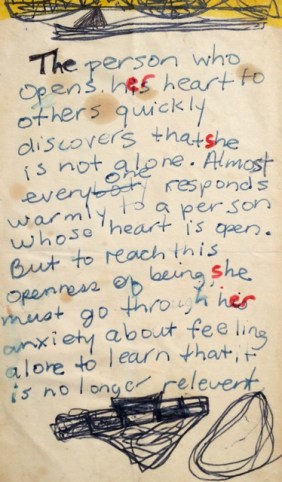 The person who
opens her heart to
others quickly
discovers that she
is not alone. Almost
everyone responds
warmly to a person
whose heart is open.
But to reach this
openness of being, she
must go through her
anxiety about feeling
alone to learn that it
is no longer relevent